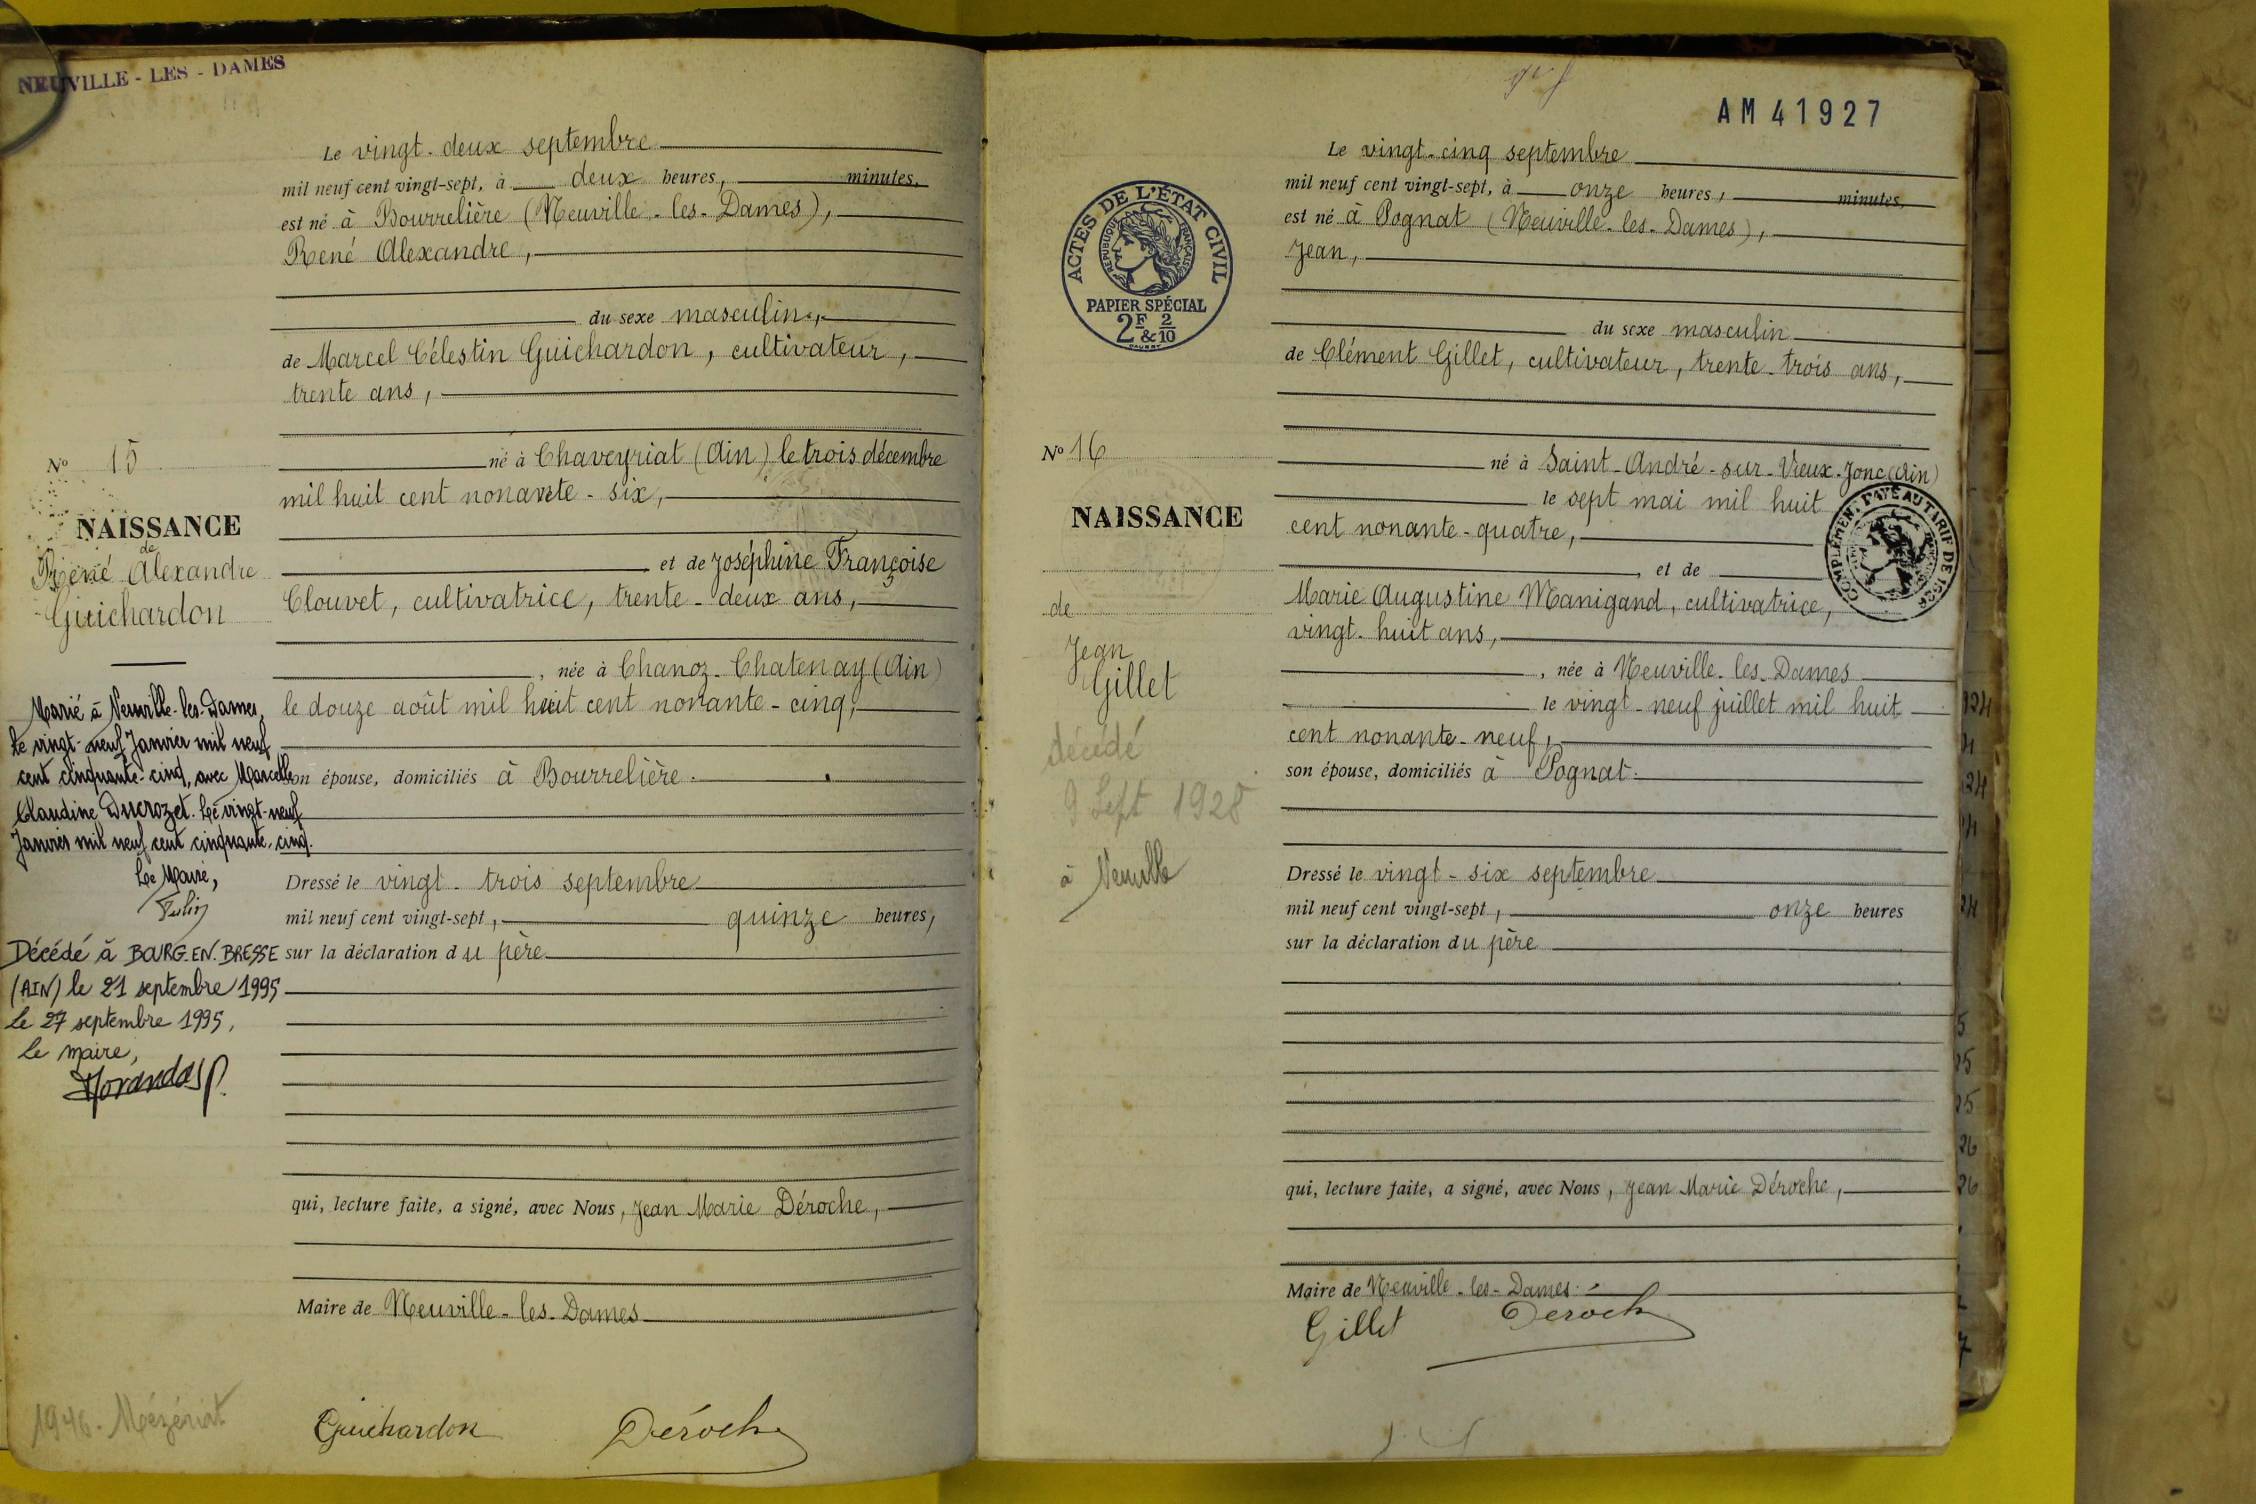 NEUVILLE - LES - DAMES
Le vingt-deux septembre
mil neuf cent vingt-sept, à deux heures, minutes,
est né à Bourrelière (Neuville-les-Dames),
René Alexandre,
du sexe masculin,
de Marcel Célestin Guichardon, cultivateur,
trente ans,
né à Chaveyriat (Ain) le trois décembre
mil huit cent nonante-six,
et de Joséphine Françoise
Clouvet, cultivatrice, trente-deux ans,
, née à Chanoz-Chatenay (Ain)
le douze août mil huit cent nonante-cinq,
son épouse, domiciliés à Bourrelière.
Dressé le vingt-trois septembre
mil neuf cent vingt-sept, quinze heures,
sur la déclaration du père
qui, lecture faite, a signé, avec Nous, Jean Marie Déroche,
Maire de Neuville-les-Dames
Guichardon Déroche
No 15
NAISSANCE
de
René Alexandre
Guichardon
Marié à Neuville-les-Dames,
le vingt-neuf Janvier mil neuf
cent cinquante-cinq, avec Marcelle
Claudine Ducrozet. Le vingt-neuf
Janvier mil neuf cent cinquante-cinq.
Le Maire,
Décédé à BOURG-EN-BRESSE
(AIN) le 21 septembre 1995
le 27 septembre 1995,
le maire,
1946. Mézériat
AM 41927
ACTES DE L'ÉTAT CIVIL
RÉPUBLIQUE FRANÇAISE
PAPIER SPÉCIAL
2F & 2/10
Le vingt-cinq septembre
mil neuf cent vingt-sept, à onze heures, minutes,
est né à Pognat (Neuville-les-Dames),
Jean,
du sexe masculin
de Clément Gillet, cultivateur, trente-trois ans,
né à Saint-André-sur-Vieux-Jonc (Ain)
le sept mai mil huit
cent nonante-quatre,
, et de
Marie Augustine Manigand, cultivatrice,
vingt-huit ans,
, née à Neuville-les-Dames
le vingt-neuf juillet mil huit
cent nonante-neuf,
son épouse, domiciliés à Pognat.
Dressé le vingt-six septembre
mil neuf cent vingt-sept, onze heures
sur la déclaration du père
qui, lecture faite, a signé, avec Nous, Jean Marie Déroche,
Maire de Neuville-les-Dames
Gillet Déroche
COMPLÉMENT PAYÉ AU TARIF DE 1926
No 16
NAISSANCE
de
Jean
Gillet
décédé
9 Sept 1928
à Neuville